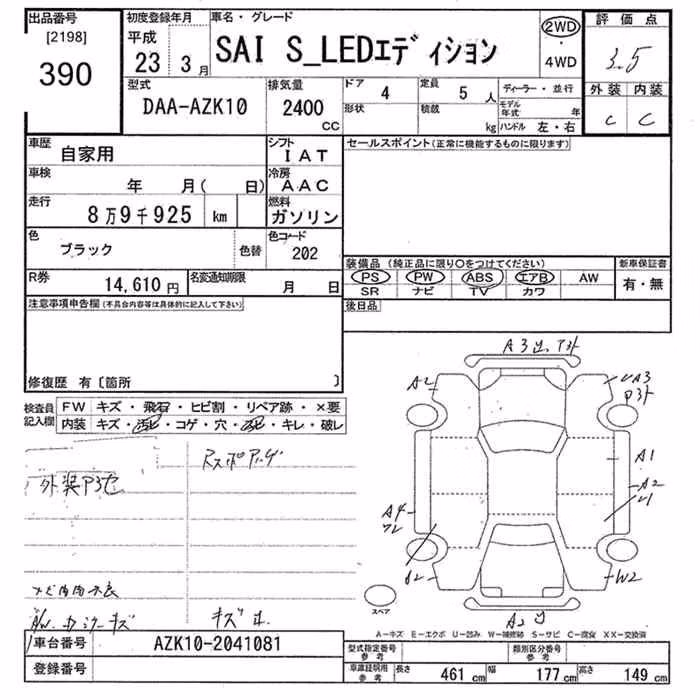 出品番号
[2198]
390
初度登録年月
平成
23 3月
車名・グレード
SAI S_LEDｴﾃﾞｨｼｮﾝ
2WD
・
4WD
評価点
3.5
外装 内装
C C
型式
DAA-AZK10
排気量
2400
CC
ドア 4
形状
定員 5 人
積載 kg
ディーラー・並行
モデル年式 年
ハンドル 左・右
車歴 自家用
シフト IAT
セールスポイント(正常に機能するものに限ります)
車検 年 月( 日)
冷房 AAC
走行 8万9千925 km
燃料 ガソリン
色 ブラック
色替
色コード 202
R券 14,610円
名変通知期限 月 日
装備品 (純正品に限り○をつけてください)
PS PW ABS エアB AW
SR ナビ TV カワ
新車保証書
有・無
後日品
注意事項申告欄(不具合内容等は具体的に記入して下さい)
修復歴 有〔箇所 〕
検査員記入欄
FW キズ・飛石・ヒビ割・リペア跡・×要
内装 キズ・汚レ・コゲ・穴・・キレ・破レ
外装
キズ
A2
A3
P3
A1
A2
U1
A4
W2
A2
スペア
A-キズ E-エクボ U-凹み W-補修跡 S-サビ C-腐食 XX-交換済
車台番号 AZK10-2041081
登録番号
型式指定番号 参考
類別区分番号 参考
車庫証明用 参考
長さ 461 cm 幅 177 cm 高さ 149 cm